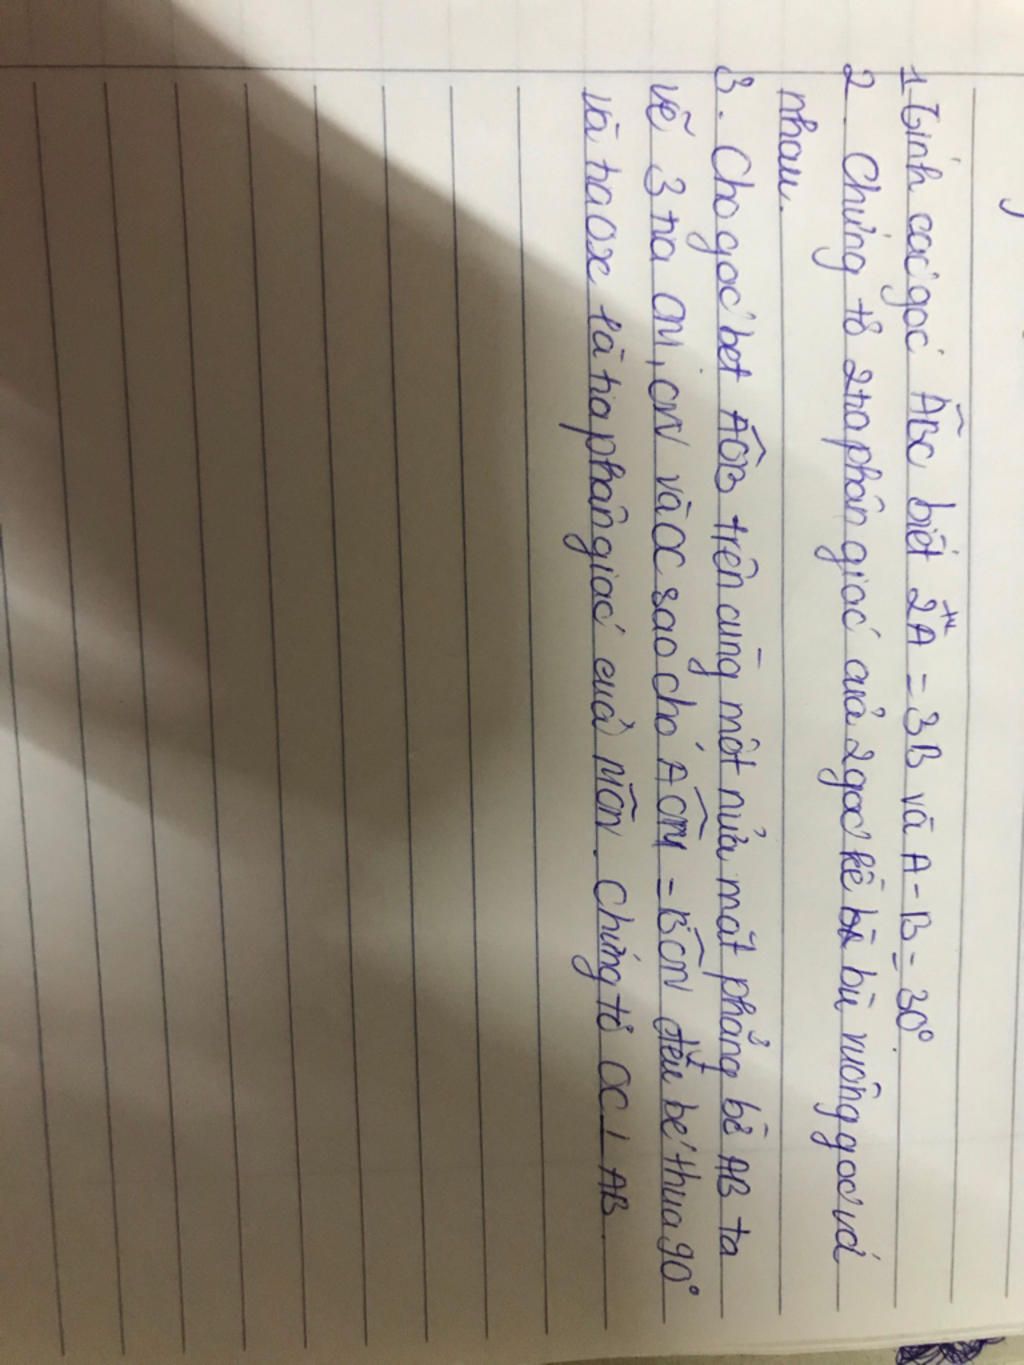 1 Tính các góc ABC biết 2A = 3B và A - B = 30°
2. Chứng tỏ 2 tia phân giác của 2 góc kề bù vuông góc với
nhau.
3. Cho góc bẹt AOB trên cùng một nửa mặt phẳng bờ AB ta
vẽ 3 tia OM, ON và OC sao cho AOM = BON đều bé thua 90°
và tia OC là tia phân giác của MON. Chứng tỏ OC ⊥ AB.